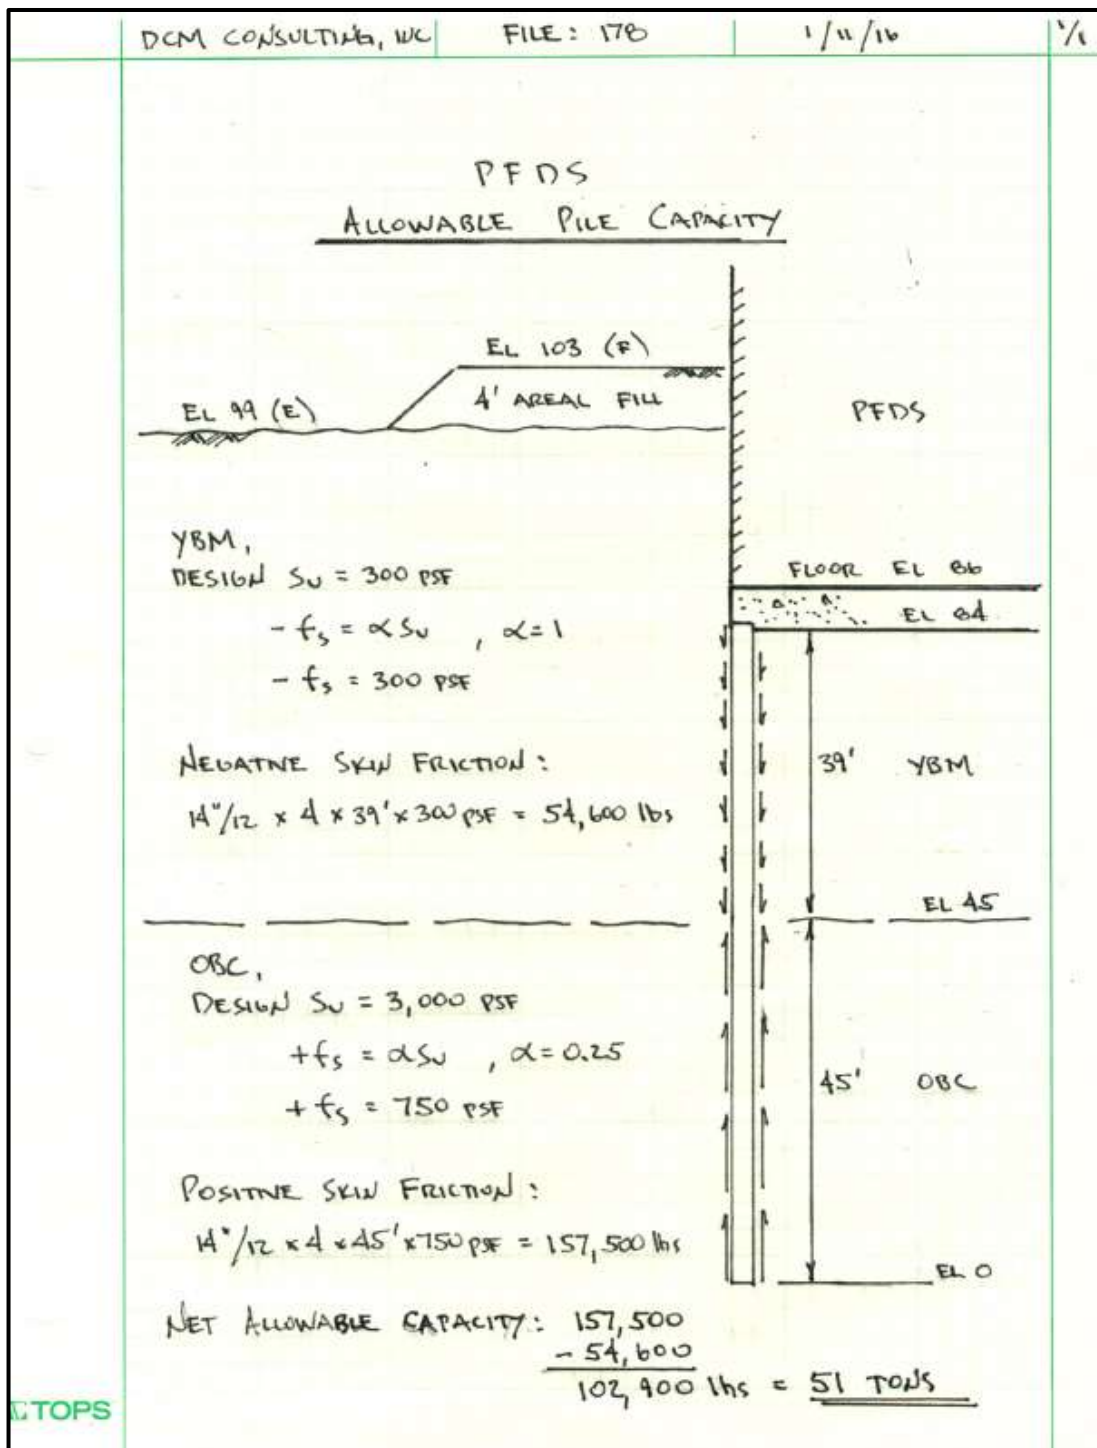 DCM CONSULTING, INC FILE: 178 1/11/16 1/1
PFDS
ALLOWABLE PILE CAPACITY
EL 103 (F)
4' AREAL FILL
EL 99 (E)
PFDS
YBM,
DESIGN Su = 300 PSF
- fs = αSu , α=1
- fs = 300 PSF
FLOOR EL 86
EL 84
NEGATIVE SKIN FRICTION:
14"/12 x 4 x 39' x 300 PSF = 54,600 lbs
39' YBM
EL 45
OBC,
DESIGN Su = 3,000 PSF
+fs = αSu , α=0.25
+ fs = 750 PSF
45' OBC
POSITIVE SKIN FRICTION:
14"/12 x 4 x 45' x 750 PSF = 157,500 lbs
EL 0
NET ALLOWABLE CAPACITY: 157,500
- 54,600
102,900 lbs = 51 TONS
TOPS